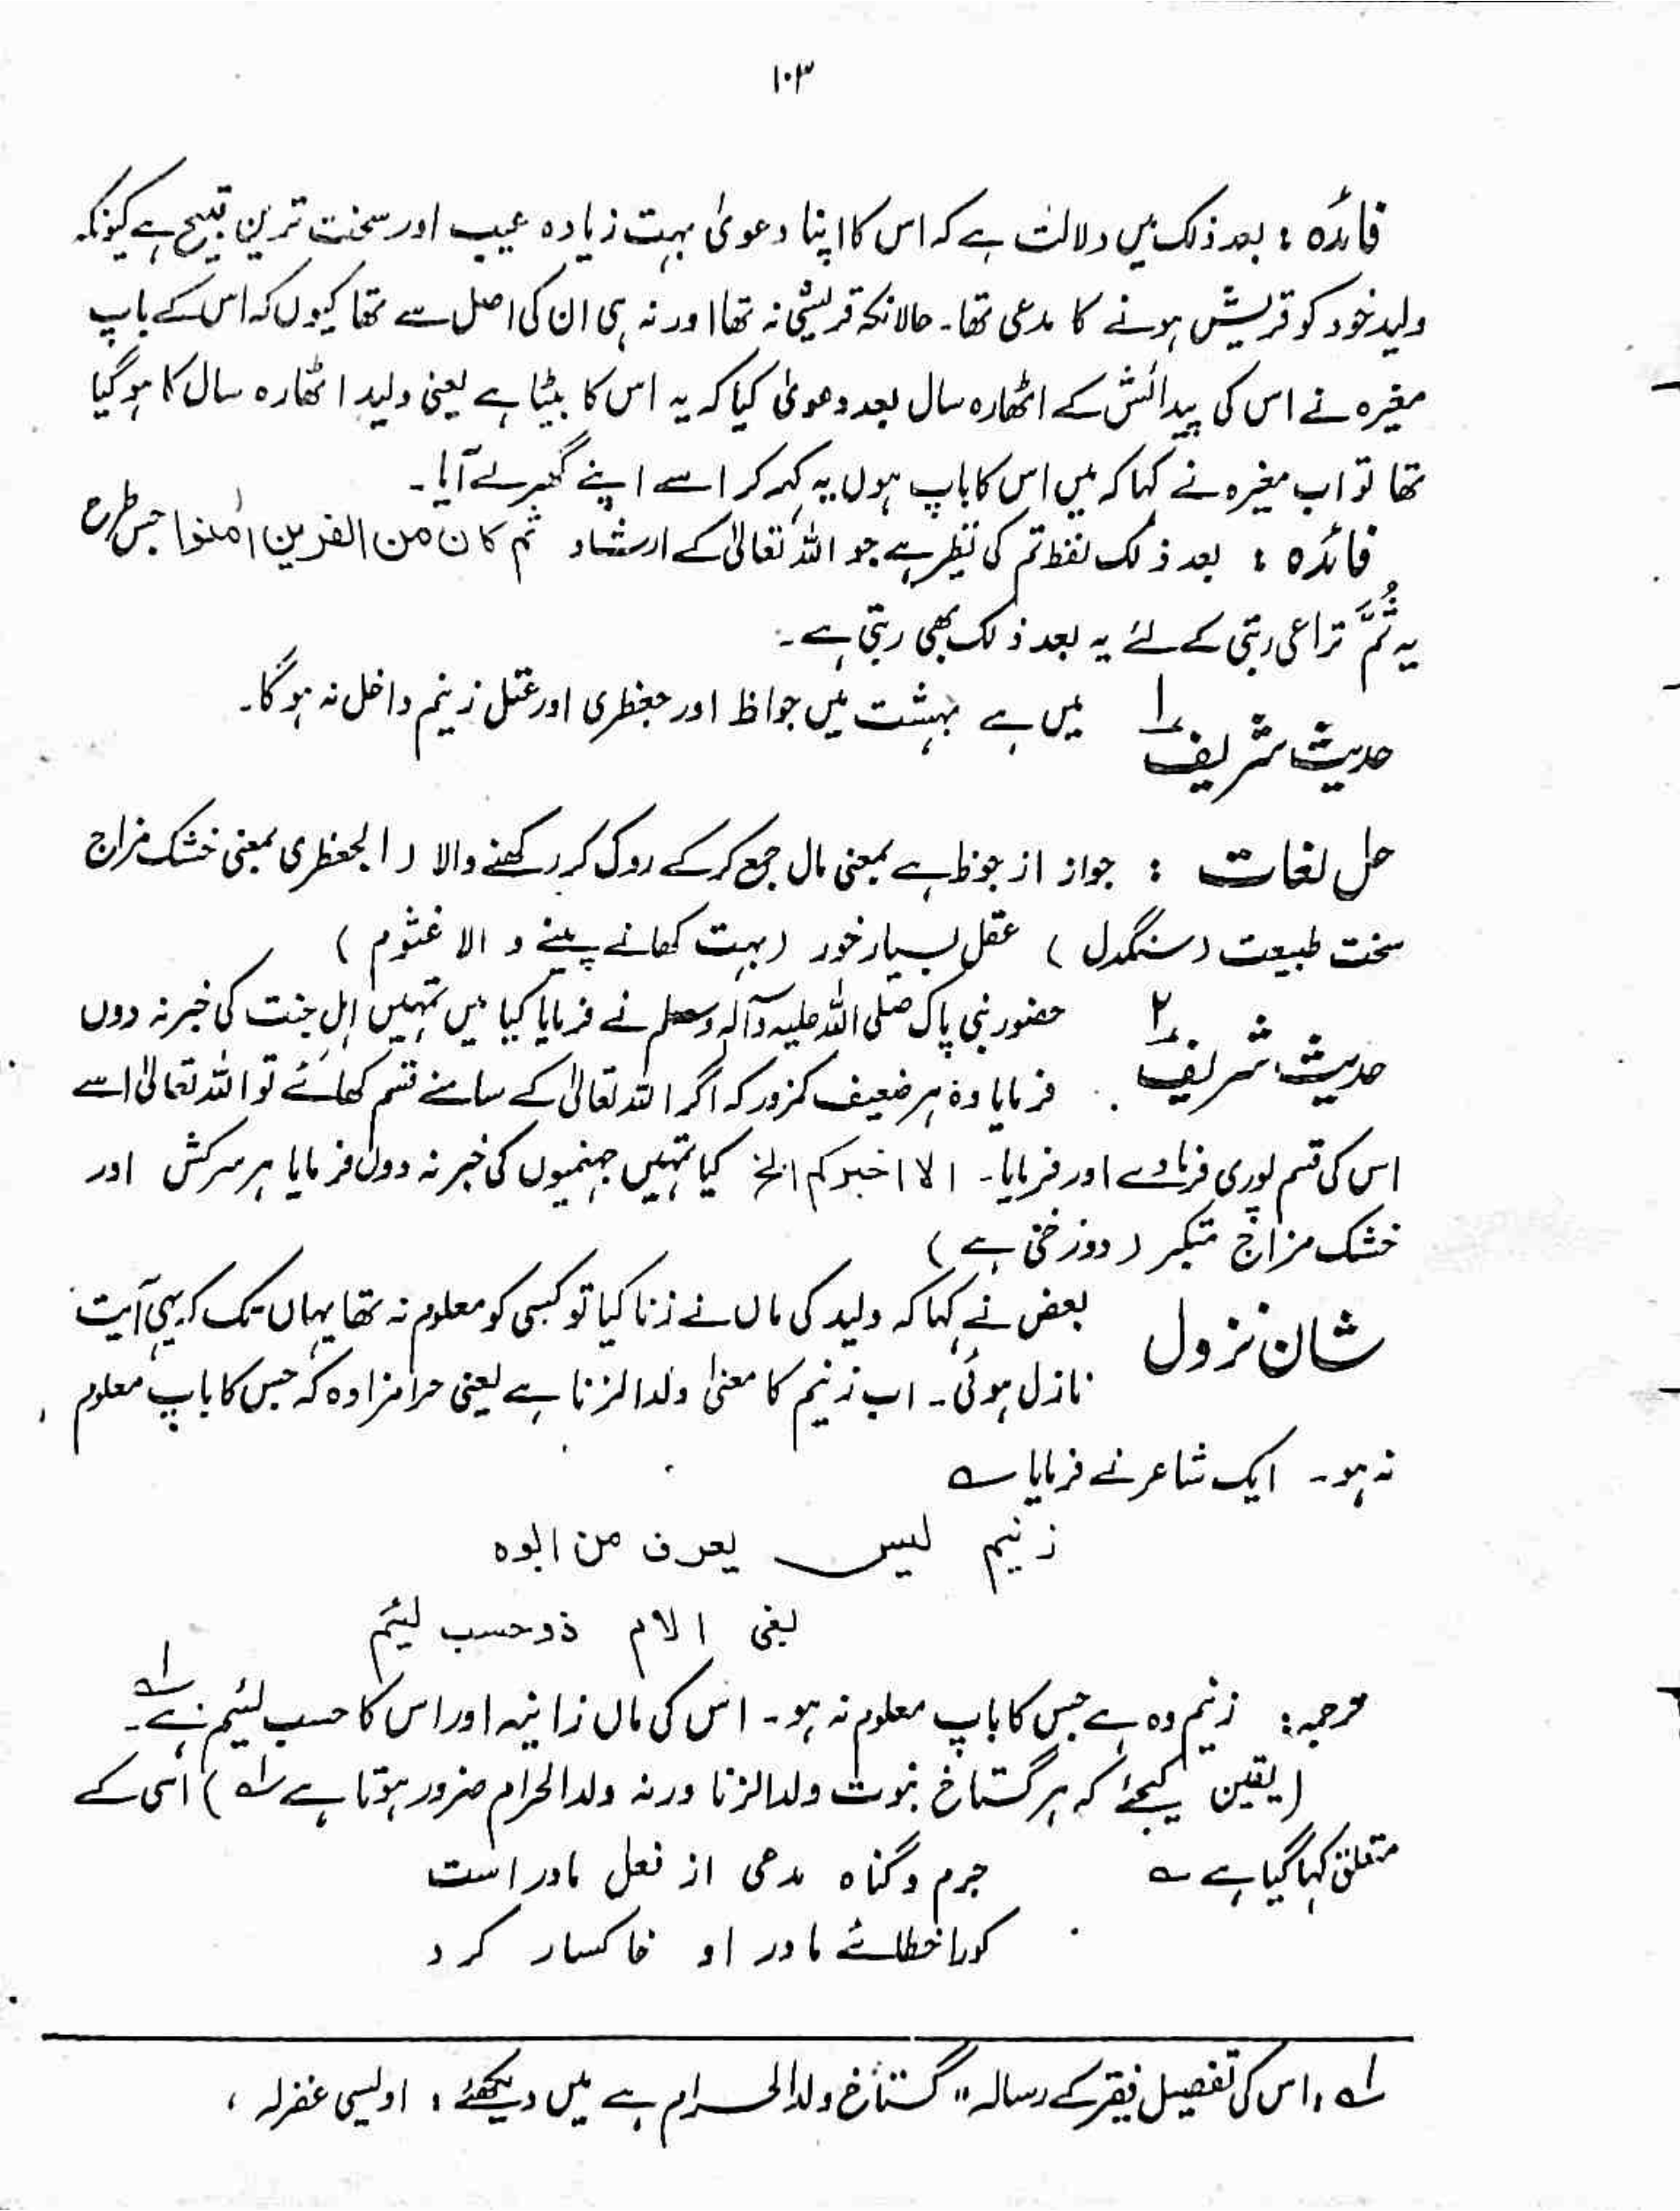 ۱۰۳
فائدہ : بعد ذلک میں دلالت ہے کہ اس کا اپنا دعویٰ بہت زیادہ عیب اور سخت ترین قبیح ہے کیونکہ
ولید خود کو قریش ہونے کا مدعی تھا۔ حالانکہ قریشی نہ تھا اور نہ ہی ان کی اصل سے تھا کیوں کہ اس کے باپ
مغیرہ نے اس کی پیدائش کے اٹھارہ سال بعد دعویٰ کیا کہ یہ اس کا بیٹا ہے یعنی ولید اٹھارہ سال کا ہو گیا
تھا تو اب مغیرہ نے کہا کہ میں اس کا باپ ہوں یہ کہہ کر اسے اپنے گھر لے آیا۔
فائدہ : بعد ذلک لفظ ثم کی نظیر ہے جو اللہ تعالیٰ کے ارشاد ثم کان من الذین اٰمنوا جس طرح
یہ ثُمَّ تراعی رتبی کے لئے یہ بعد ذلک بھی رتبی ہے۔
حدیث شریف ۱ میں ہے بہشت میں جواظ اور جعظری اور عتل زنیم داخل نہ ہوگا۔
حل لغات : جواز از جوظ ہے بمعنی مال جمع کرکے روک کر رکھنے والا ( الجعظری بمعنی خشک مزاج
سخت طبیعت (سنگدل) عقل بسیار خور (بہت کھانے پینے والا غشوم)
حدیث شریف ۲ حضور نبی پاک صلی اللہ علیہ وآلہ وسلم نے فرمایا کیا میں تمہیں اہلِ جنت کی خبر نہ دوں
فرمایا وہ ہر ضعیف کمزور کہ اگر اللہ تعالیٰ کے سامنے قسم کھائے تو اللہ تعالیٰ اسے
اس کی قسم پوری فرما دے اور فرمایا۔ الا اخبرکم الخ کیا تمہیں جہنمیوں کی خبر نہ دوں فرمایا ہر سرکش اور
خشک مزاج متکبر (دوزخی ہے)
شان نزول بعض نے کہا کہ ولید کی ماں نے زنا کیا تو کسی کو معلوم نہ تھا یہاں تک کہ یہی آیت
نازل ہوئی۔ اب زنیم کا معنیٰ ولد الزنا ہے یعنی حرامزادہ کہ جس کا باپ معلوم
نہ ہو۔ ایک شاعر نے فرمایا ؎
زنیم لیس یعرف من ابوہ
بغی الام ذو حسب لئیم
ترجمہ: زنیم وہ ہے جس کا باپ معلوم نہ ہو۔ اس کی ماں زانیہ اور اس کا حسب لئیم ہے۔ ۱؎
(یقین کیجئے کہ ہر گستاخ نبوت ولد الزنا ورنہ ولد الحرام ضرور ہوتا ہے ۱؎) اسی کے
متعلق کہا گیا ہے ؎ جرم و گناہ مدعی از فعل مادر است
کورا خطائے مادر او خاکسار کرد
۱؎ ، اس کی تفصیل فقیر کے رسالہ "گستاخ ولد الحرام ہے میں دیکھئے ، اویسی غفرلہ ،